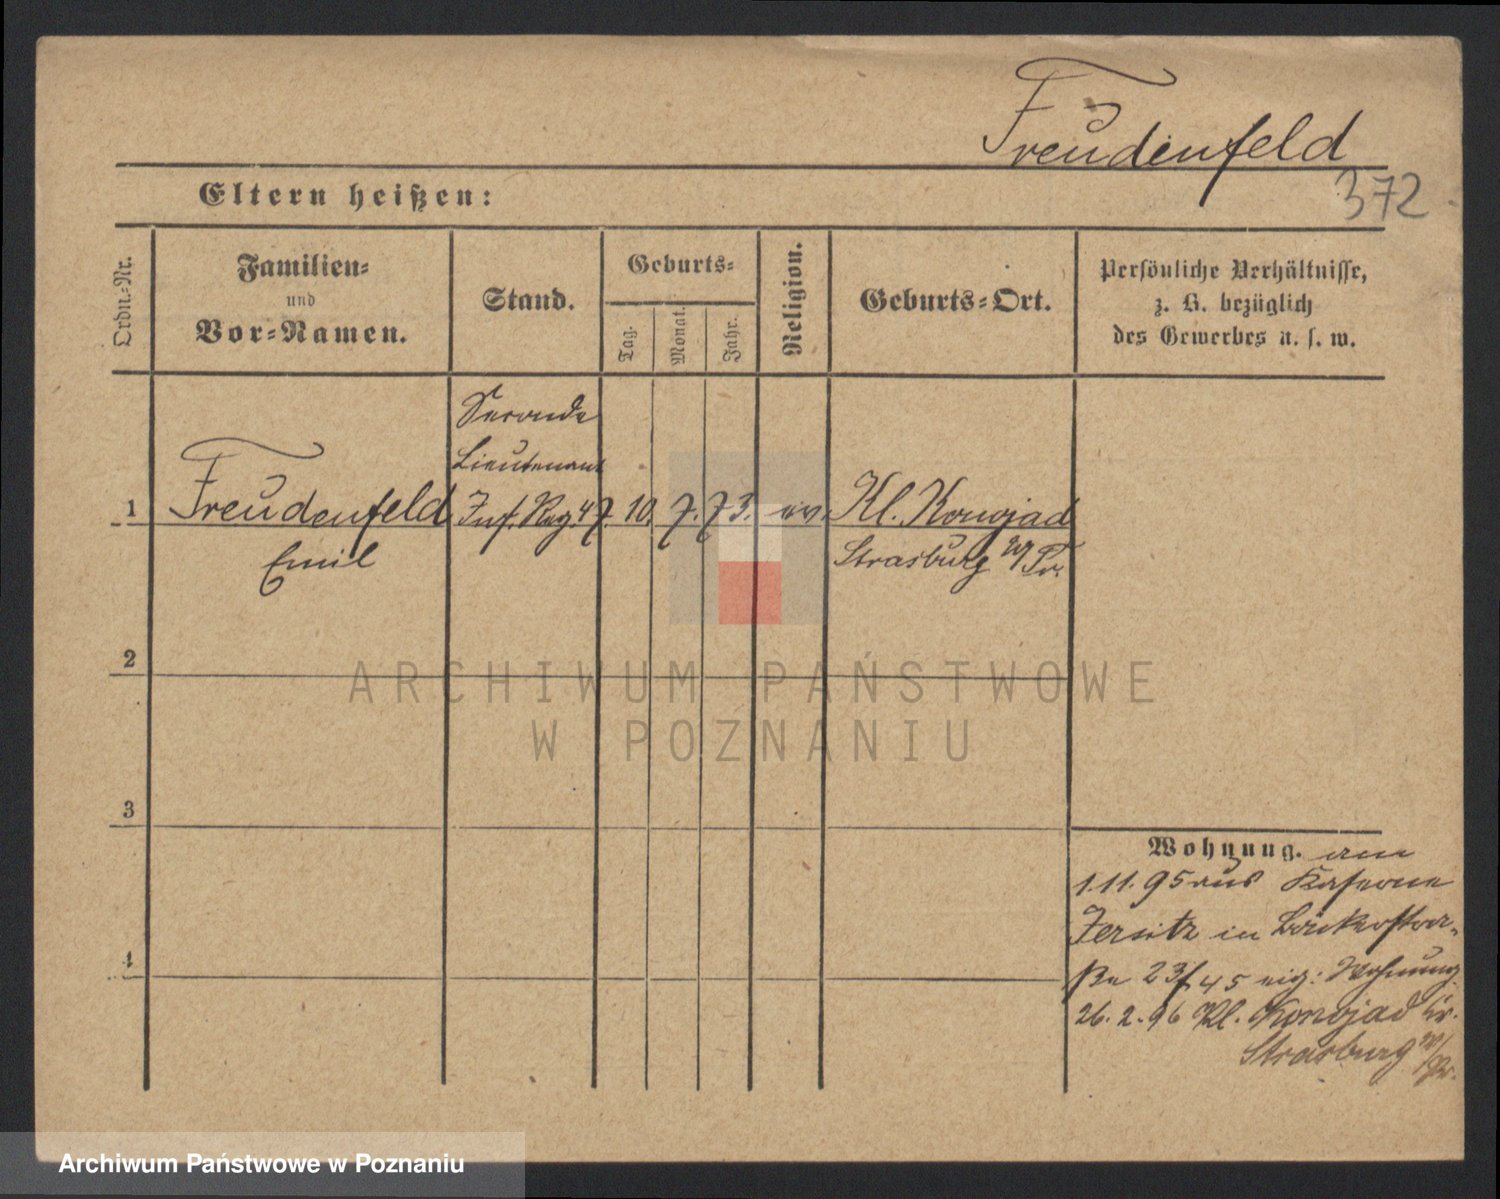 Freudenfeld
372
Eltern heißen:
Ordn.-Nr.
Familien-
und
Vor-Namen.
Stand.
Geburts-
Tag.
Monat.
Jahr.
Religion.
Geburts-Ort.
Persönliche Verhältnisse,
z. B. bezüglich
des Gewerbes u. s. w.
1
Freudenfeld
Emil
Seconde
Lieutenant
Inf. Reg. 47.
10. 7. 73. ev.
Kl. Konojad
Strasburg W/Pr.
2
3
4
Wohnung. am
1.11.95 aus Kaserne
Jersitz in
ße 23 45 eig: Wohnung
26.2.96 Kl. Konojad Kr.
Strasburg W/Pr.
ARCHIWUM PAŃSTWOWE
W POZNANIU
Archiwum Państwowe w Poznaniu